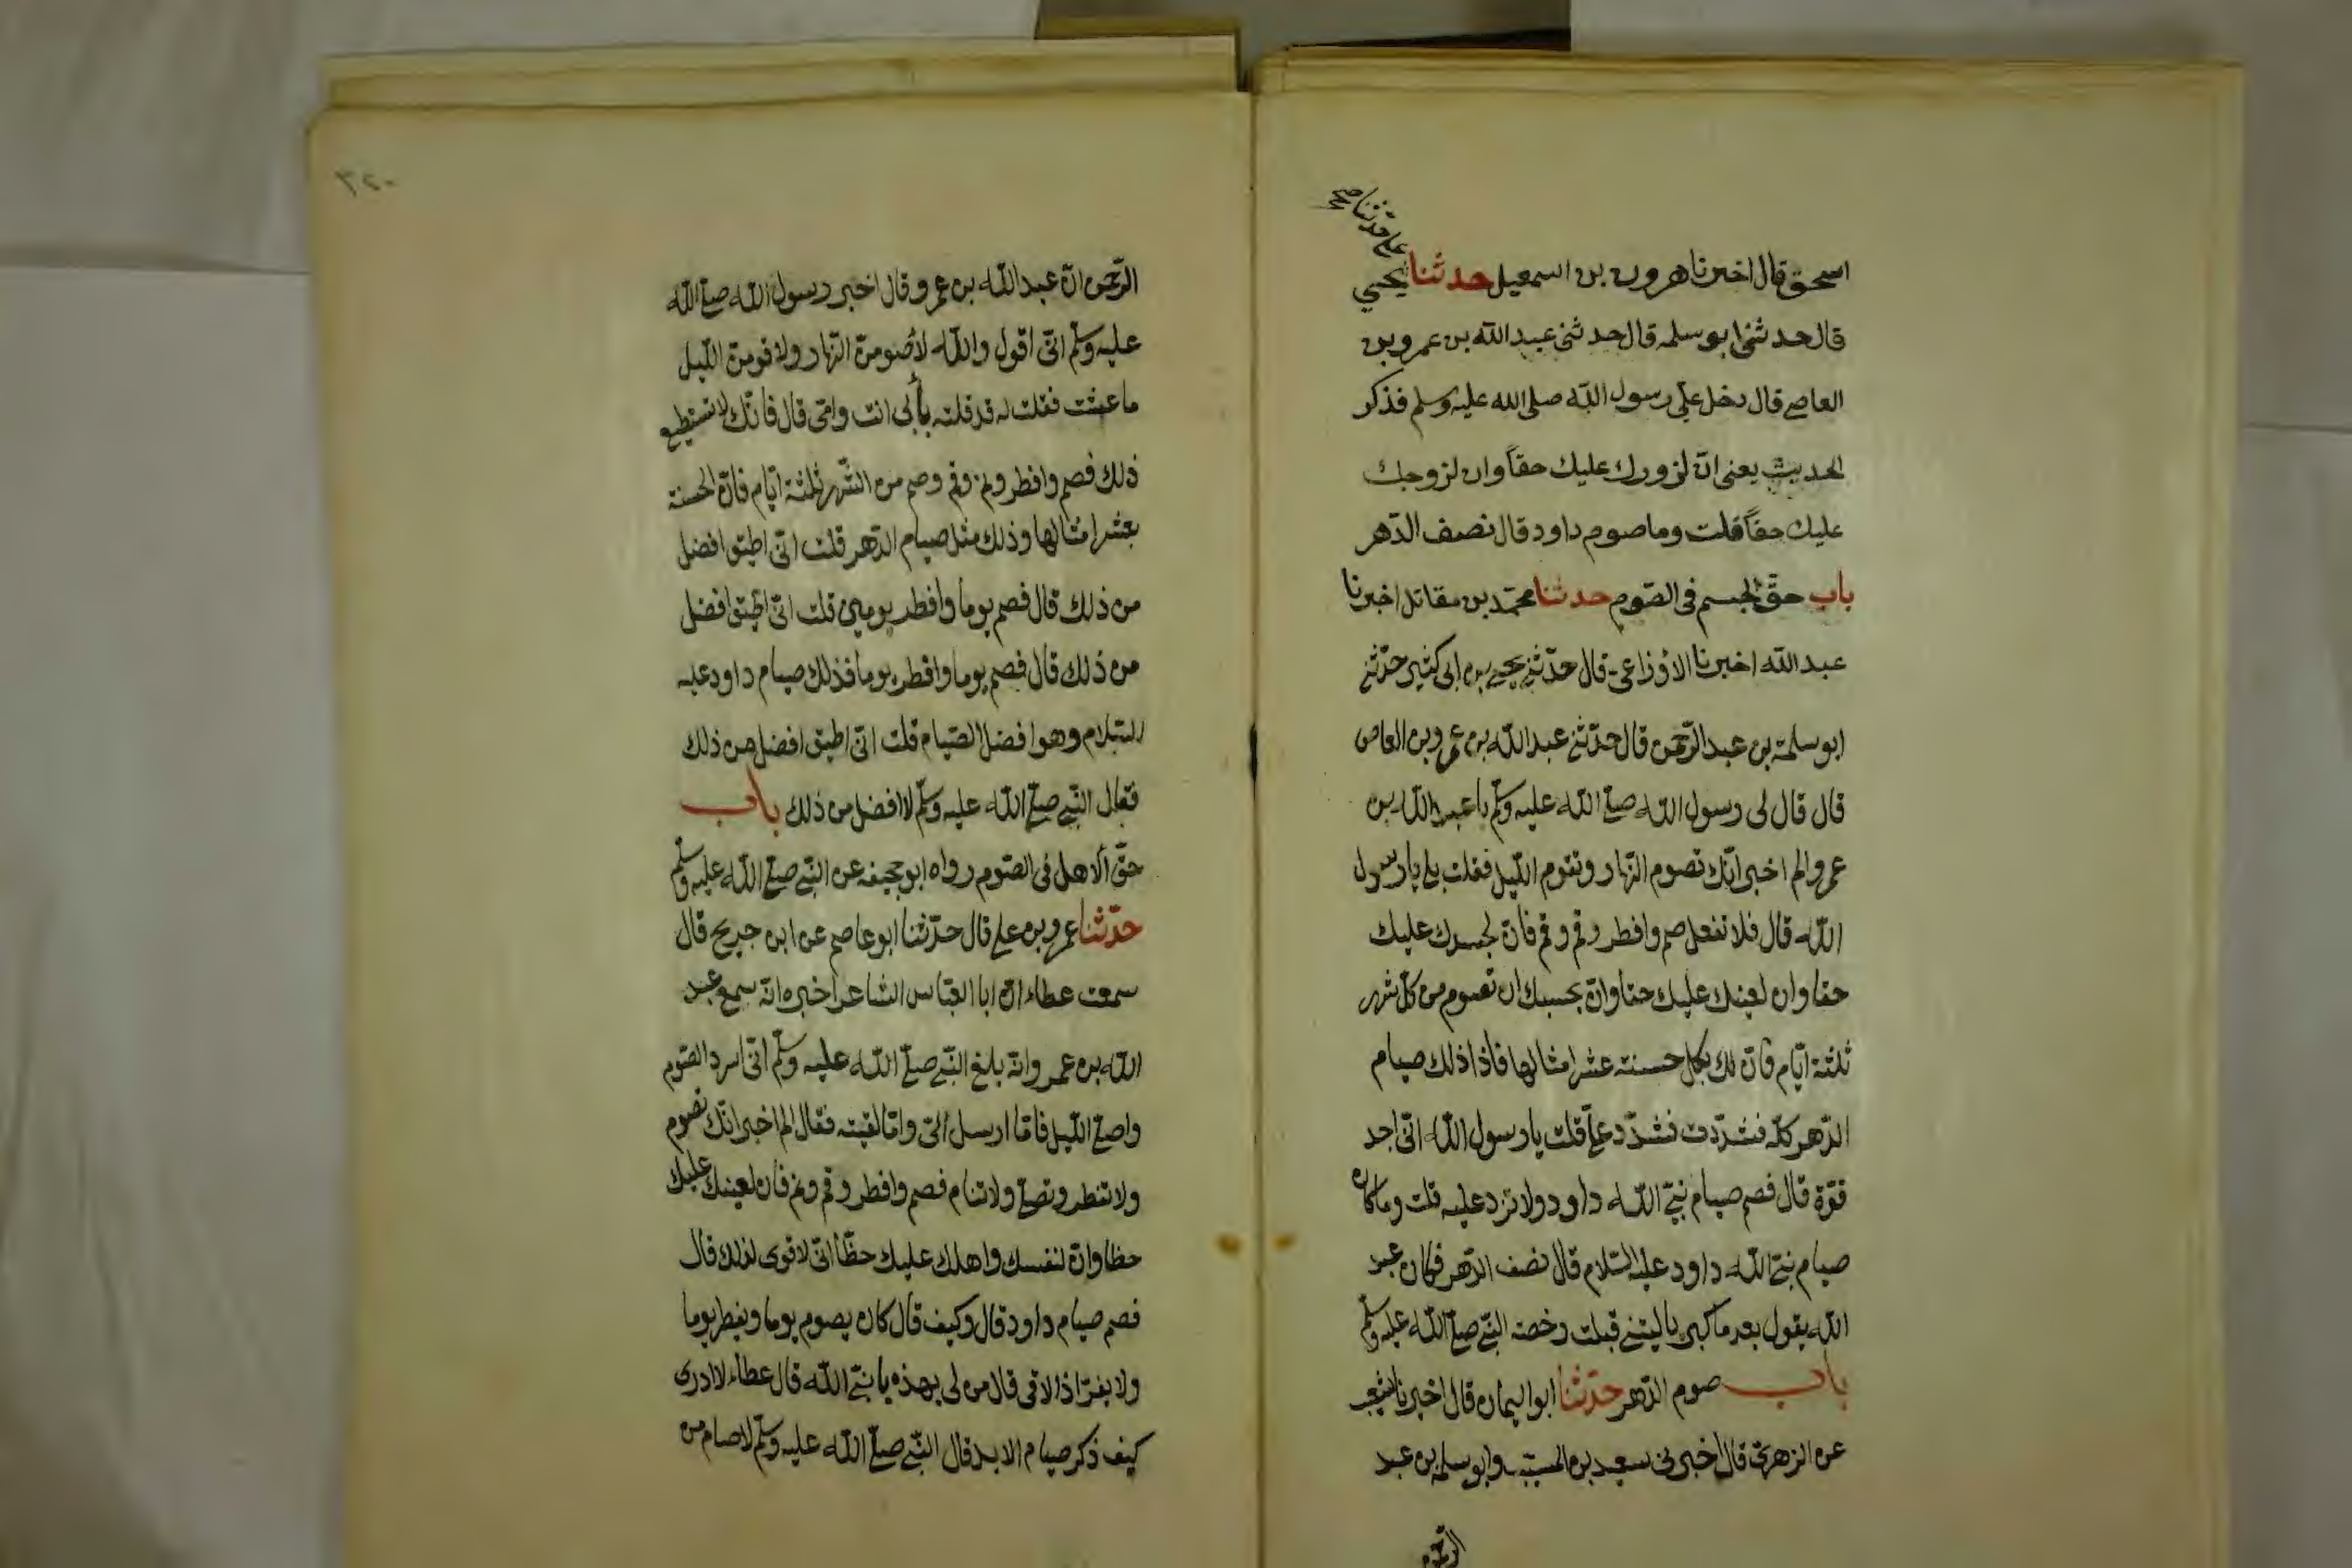 على حدثنا صح
اسحق قال اخبرنا هرون بن اسمعيل حدثنا يحيي
قال حدثنى ابو سلمه قال حدثنى عبد الله بن عمرو بن
العاص قال دخل على رسول الله صلى الله عليه وسلم فذكر
الحديث يعنى ان لزورك عليك حقاً وان لزوجك
عليك حقاً قلت وما صوم داود قال نصف الدّهر
باب حقّ الجسم فى الصّوم حدثنا محمّد بن مقاتل اخبرنا
عبد الله اخبرنا الاوزاعى قال حدّثنى يحيى بن ابى كثير حدّثنى
ابو سلمة بن عبد الرّحمن قال حدّثنى عبد الله بن عمرو بن العاص
قال قال لى رسول الله صلّى الله عليه وسلّم يا عبد الله بن
عمرو الم اخبر انّك تصوم النّهار وتقوم اللّيل فقلت بلى يا رسول
الله قال فلا تفعل صم وافطر وقم ونم فانّ لجسدك عليك
حقا وان لعينك عليك حقا وانّ بحسبك ان تصوم من كلّ شهر
ثلثة ايّام فانّ لك بكل حسنة عشر امثالها فاذا ذلك صيام
الدّهر كلّه فشدّدت فشدّد علىّ قلت يا رسول الله انّى اجد
قوّة قال فصم صيام نبىّ الله داود ولا تزد عليه قلت وما كان
صيام نبىّ الله داود عليه السّلام قال نصف الدّهر فكان عبد
الله يقول بعد ما كبر يا ليتنى قبلت رخصة النّبى صلّى الله عليه وسلّم
باب صوم الدّهر حدّثنا ابو اليمان قال اخبرنا شعيب
عن الزهرى قال اخبرنى سعيد بن المسيّب وابو سلمة بن عبد
الرّحمن
٣٢٠
الرّحمن انّ عبد الله بن عمرو قال اخبر رسول الله صلّى الله
عليه وسلّم انّى اقول والله لاصومنّ النّهار ولاقومنّ اللّيل
ما عشت فقلت له قد قلته بأبى انت وامّى قال فانّك لا تستطيع
ذلك فصم وافطر ونم وقم وصم من الشّهر ثلثة ايّام فانّ الحسنة
بعشر امثالها وذلك مثل صيام الدّهر قلت انّى اطيق افضل
من ذلك قال فصم يوما وافطر يومين قلت انّى اطيق افضل
من ذلك قال فصم يوما وافطر يوما فذلك صيام داود عليه
السّلام وهو افضل الصّيام قلت انّى اطيق افضل من ذلك
فقال النّبى صلّى الله عليه وسلّم لا افضل من ذلك باب
حقّ الاهل فى الصّوم رواه ابو جحيفة عن النّبى صلّى الله عليه وسلّم
حدّثنا عمرو بن على قال حدّثنا ابو عاصم عن ابن جريج قال
سمعت عطاء انّ ابا العبّاس الشاعر اخبره انّه سمع عبد
الله بن عمرو انّه بلغ النّبى صلّى الله عليه وسلّم انّى اسرد الصّوم
واصلّى اللّيل فامّا ارسل الىّ وامّا لقيته فقال الم اخبر انّك تصوم
ولا تفطر وتصلّى ولا تنام فصم وافطر وقم ونم فان لعينك عليك
حظا وانّ لنفسك واهلك عليك حظّا انّى لاقوى لذلك قال
فصم صيام داود قال وكيف قال كان يصوم يوما ويفطر يوما
ولا يفرّ اذا لاقى قال من لى بهذه يا نبىّ الله قال عطاء لا ادرى
كيف ذكر صيام الابد قال النّبى صلّى الله عليه وسلّم لا صام من